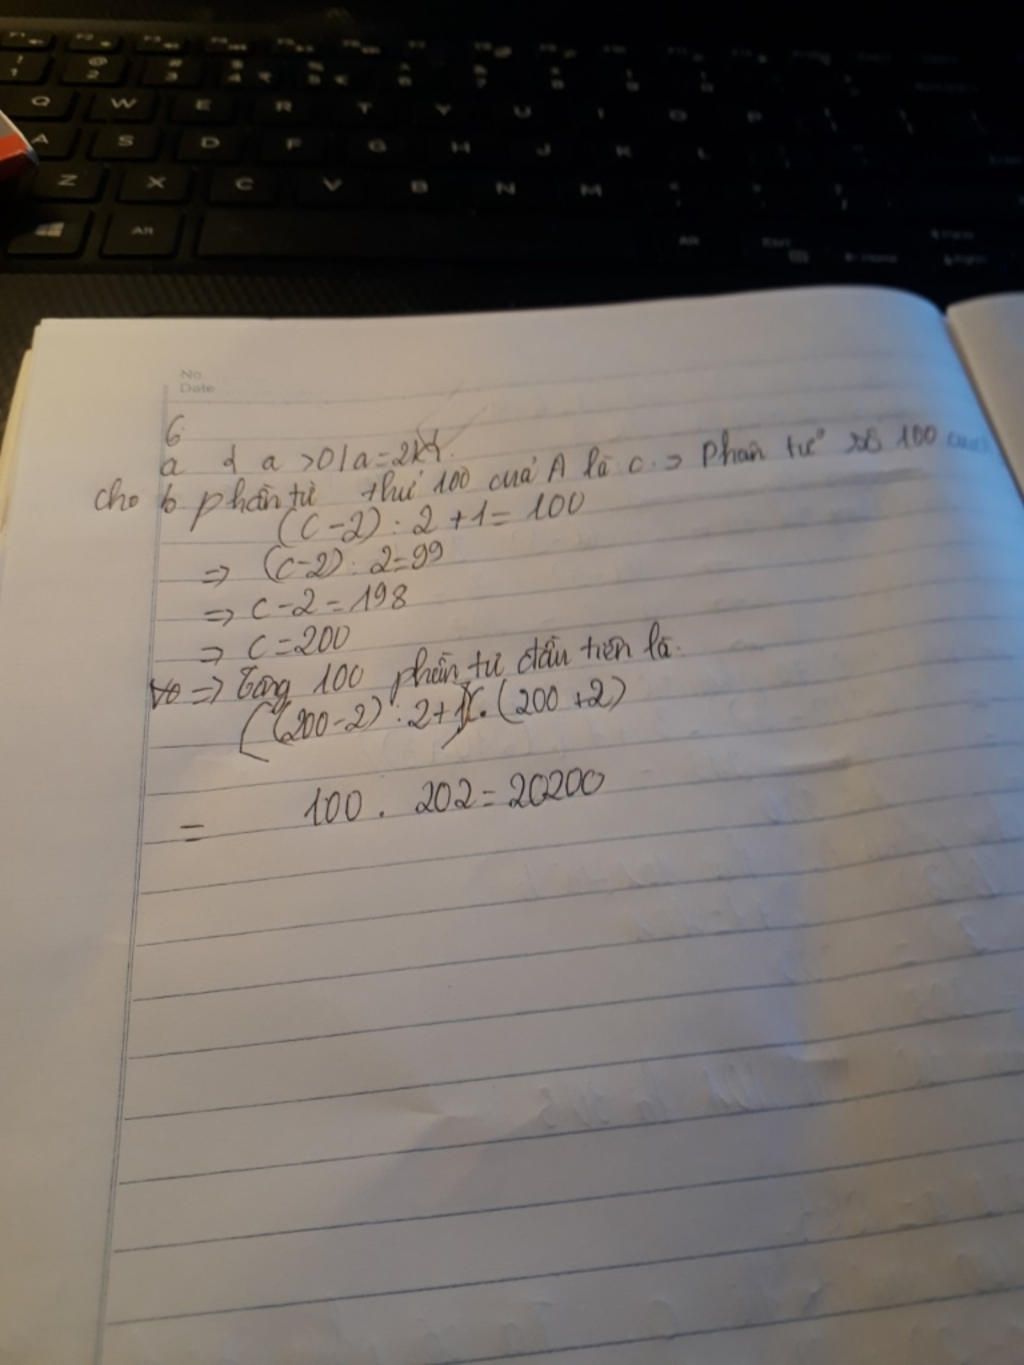 No.
Date
6
a { a >0/a=2k}.
cho b phần tử thứ 100 của A là c. => phần tử số 100
(c-2) : 2 + 1 = 100
=> (c-2) : 2=99
=> c-2 = 198
=> c=200
=> Tổng 100 phần tử đầu tiên là:
((200-2) : 2+1).(200 +2)
= 100 . 202 = 20200